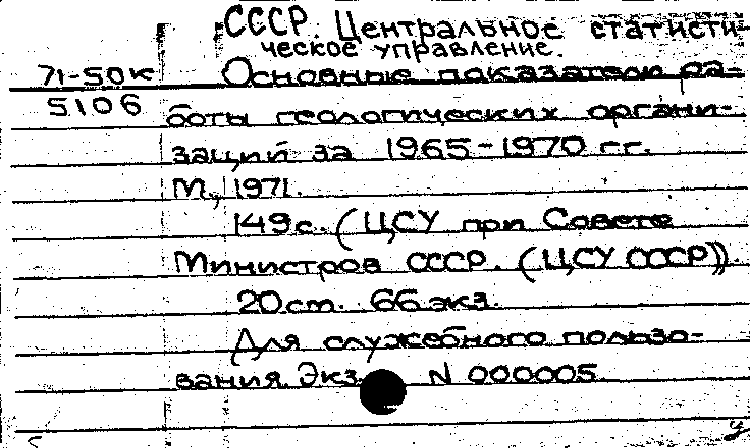 СССР. Центральное статисти-
ческое управление.
71-50к Основные показатели ра-
5106 боты геологических органи-
заций за 1965-1970 г.г.
М., 1971.
149 с. (ЦСУ при Совете
Министров СССР. (ЦСУ СССР)).
20 см. 66 экз.
Для служебного пользо-
вания. Экз. N 000005